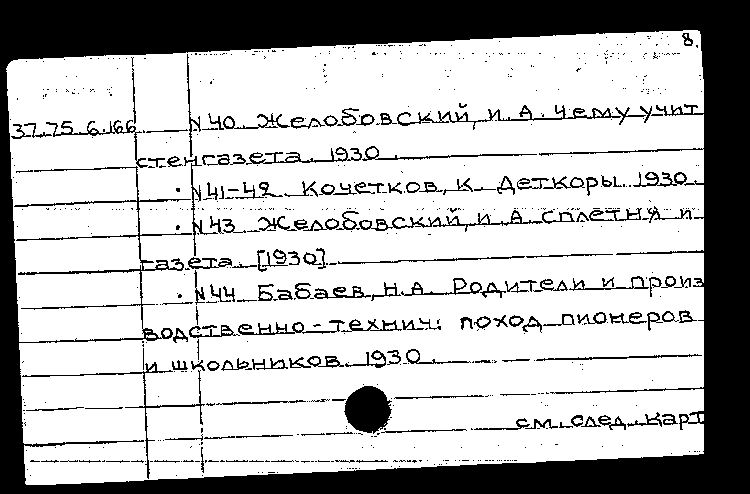 8.
37.75 6.166 N 40. Желобовский, И. А. Чему учит
стенгазета. 1930.
· N 41-42. Кочетков, К. Деткоры. 1930.
· N 43 Желобовский, И. А. Сплетня и
газета. [1930]
· N 44 Бабаев, Н. А. Родители и произ
водственно-технич: поход пионеров
и школьников. 1930.
см. след. карт